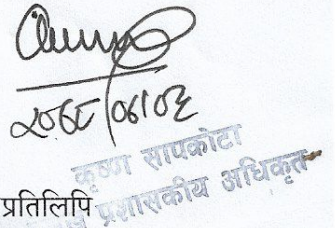 २०६८/०६/०६
कृष्ण सापकोटा
प्रशासकीय अधिकृत
प्रतिलिपि